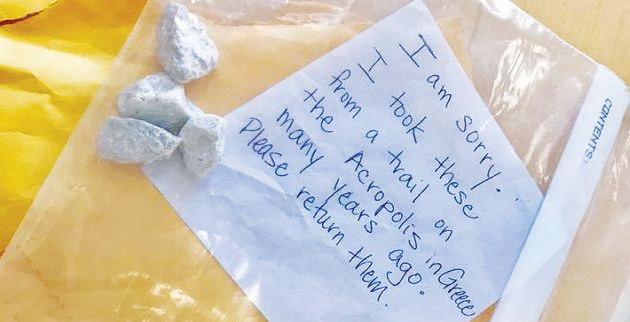 I am sorry..
I took these
from a trail on
the Acropolis in Greece
many years ago.
Please return them.
CONTENTS: